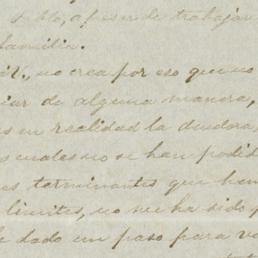 pueblo, a pesar de trabajar
familia.
no crea por eso que no
iar de alguna manera,
es en realidad la deudora,
s cuales no se han podid
es terminantes que han
limites, no me ha sido p
e dado un paso para ve